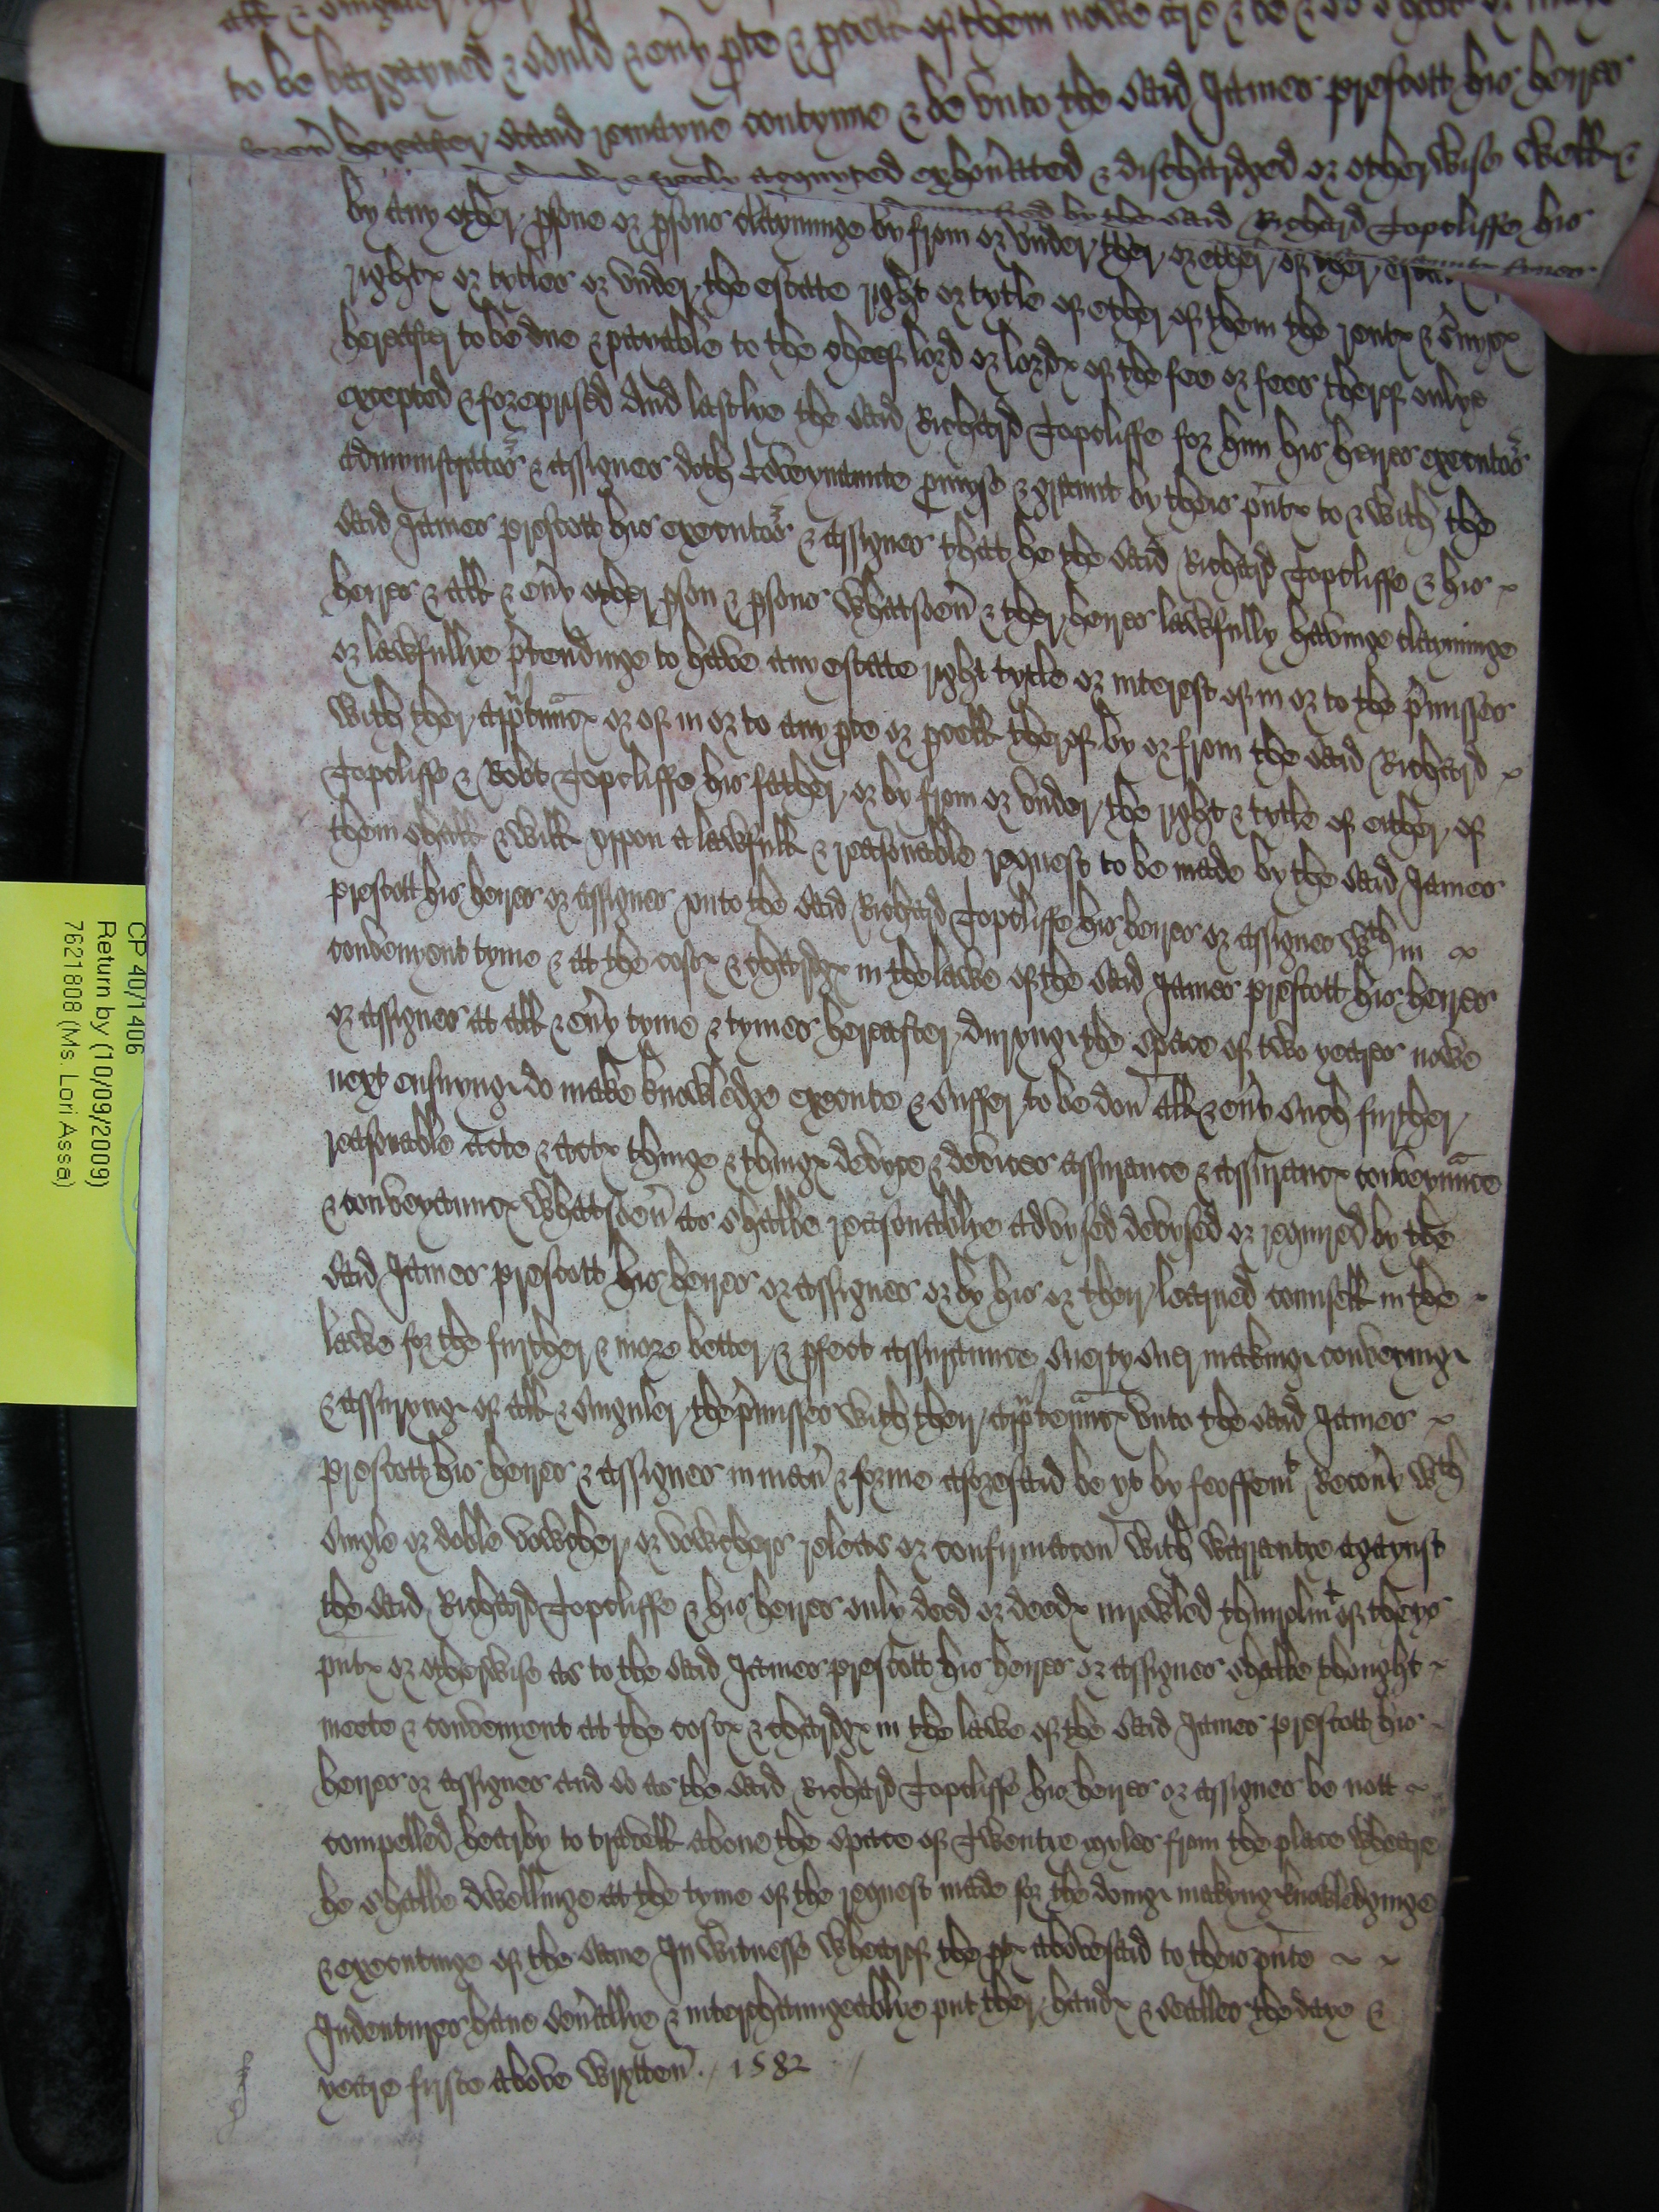 to be bargayned & sould & eny pte & pcell of them nowe
hereafter stand remayne contynue & be unto the said James prescott his heyres
acquyted exhon'ated & dischardged or otherwise well &
by the said Richard Topcliffe his
by any other psone or psons claymynge by from or under ther or ether of ther
rightx or tytles or under the estate right or tytle of ether of them the rentx & s'vycx
hereafter to be due & paiable to the cheef lord or lordx of the fee or fees therof onlye
excepted & foreprised And lastlye the said Richard Topcliffe for hym his heyres executors
admynistrators & assignes doth Covenante pmyse & graunt by theis pntx to & with the
said James prescott his executors & assignes that he the said Richard Topcliffe & his
heyres & all & eny other pson & psons whatsoev' & ther heyres lawfully havinge clayminge
or lawfullye p'tendinge to have any estate right tytle or interest of in or to the p'misses
with ther apptuncx or of in or to any pte or pcell therof by or from the said Richard
Topcliffe & Robt Topcliffe his father or by from or under the right & tytle of either of
them shall & will uppon a lawfull & reasonable request to be made by the said James
prescott his heyres or assignes unto the said Richard Topcliffe his heyres or assignes wthin
convenyent tyme & att the costx & chardgx in the lawe of the said James prescott his heyres
or assignes at all & eny tyme & tymes hereafter duryng the space of two yeares nowe
next ensuyng do make knowledge execute & suffer to be don all & eny such further
reasonable acte & actx thinge & thingx devyce & devices assurance & assurancx conveyance
& conveyauncx whatsoev' as shalbe reasonablye advysed devysed or requyred by the
said James prescott his heyres or assignes or by his or theyr learned counsell in the
lawe for the further & more better & pfect assuraunce suerty suer making conveing
& assuryng of all & singuler the p'misses with theyr apptenncx unto the said James
prescott his heyres & assignes in man' & forme aforesaid be yt by feoffemt Recov'y wth
single or doble vowcher or vowchers releas or confirmacon with warrantye agaynst
the said Richard Topcliffe & his heyres only deed or deedx inrowled thinrolmt of theys
pntx or otherwise as to the said James prescott his heyres or assignes shalbe thought
meete & convenyent att the costx & chardgx in the lawe of the said James prescott his
heyres or assignes and so as the said Richard Topcliffe his heyres or assignes be nott
compelled hearby to travell above the space of Twentie myles from the place wheare
he shalbe dwellinge att the tyme of the request made for the doing making knowledginge
& executinge of the same In witnesse whearof the ptx abovesaid to theis pnte
Indentures have sev'allye & interchaungeablye put ther handx & sealles the daye &
yeare firste above wrytten . / 1582
CP 40/1406
Return by (10/09/2009)
7621808 (Ms. Lori Assa)